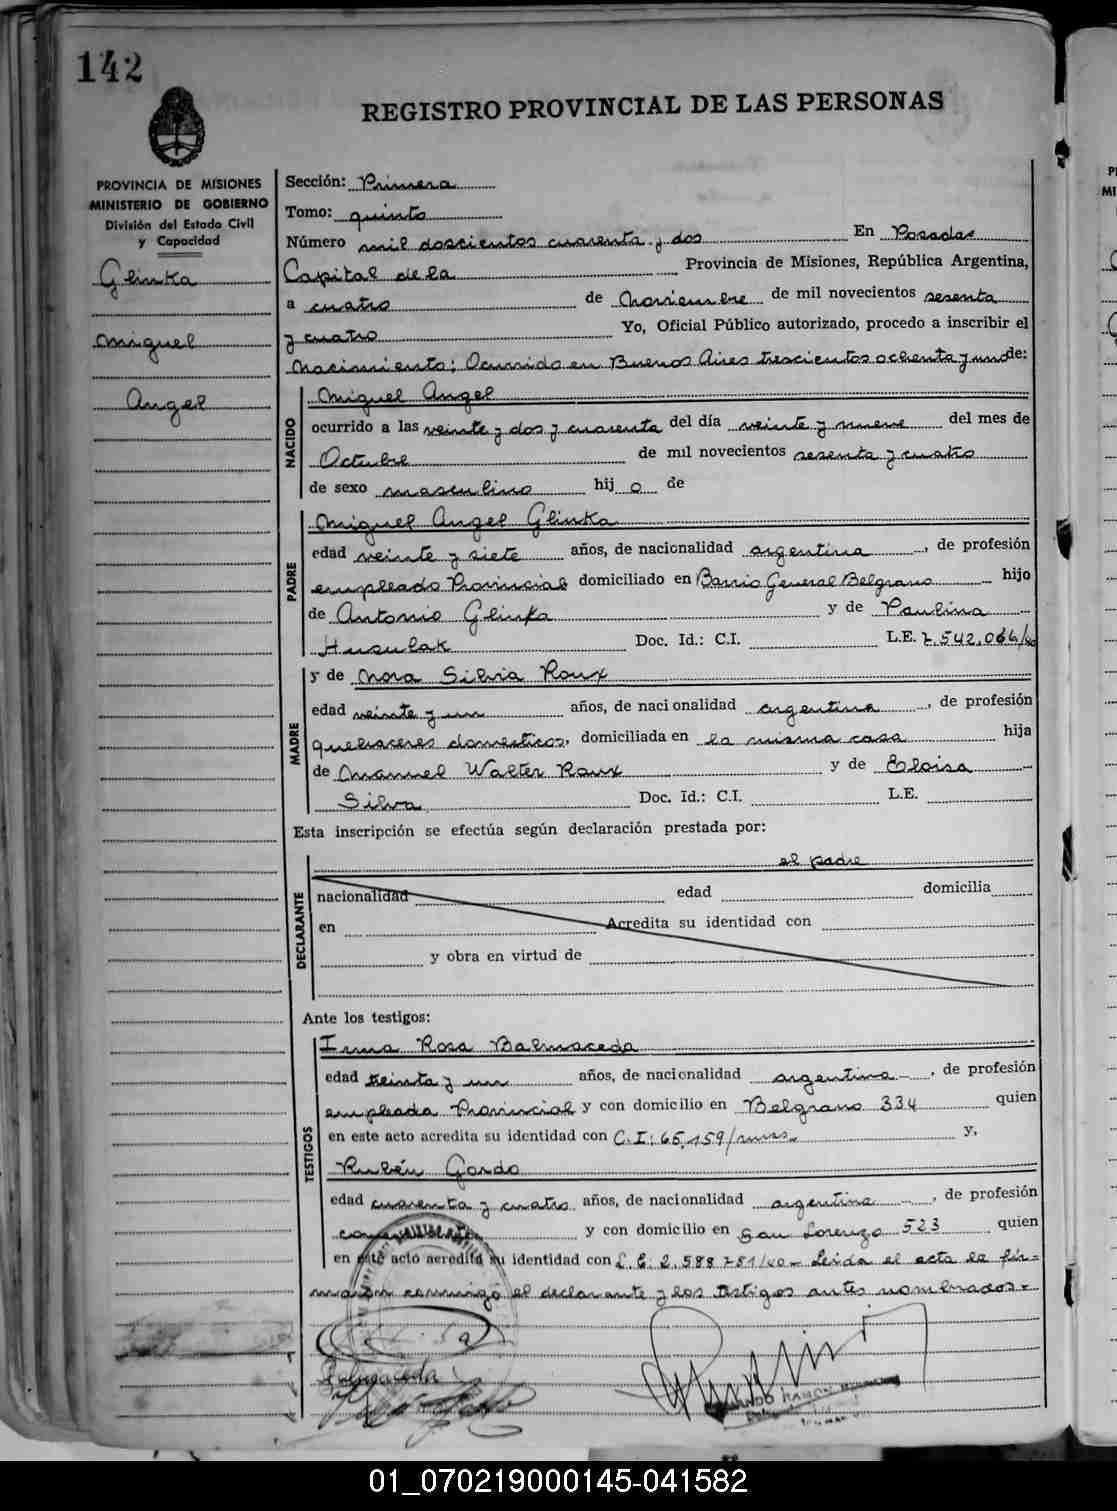 142
REGISTRO PROVINCIAL DE LAS PERSONAS
PROVINCIA DE MISIONES
MINISTERIO DE GOBIERNO
División del Estado Civil
y Capacidad
Glinka
Miguel
Angel
Sección: Primera
Tomo: quinto
Número mil doscientos cuarenta y dos En Posadas
Capital de la Provincia de Misiones, República Argentina,
a cuatro de Noviembre de mil novecientos sesenta
y cuatro Yo, Oficial Público autorizado, procedo a inscribir el
Nacimiento; Ocurrido en Buenos Aires trescientos ochenta y uno de:
NACIDO
Miguel Angel
ocurrido a las veinte y dos y cuarenta del día veinte y nueve del mes de
Octubre de mil novecientos sesenta y cuatro
de sexo masculino hij o de
PADRE
Miguel Angel Glinka
edad veinte y siete años, de nacionalidad argentina, de profesión
empleado Provincial domiciliado en Barrio General Belgrano hijo
de Antonio Glinka y de Paulina
Husulak Doc. Id.: C.I. L.E. 7.542.066/
MADRE
y de Nora Silvia Roux
edad veinte y un años, de nacionalidad argentina, de profesión
quehaceres domesticos, domiciliada en la misma casa hija
de Manuel Walter Roux y de Eloisa
Silva Doc. Id.: C.I. L.E.
Esta inscripción se efectúa según declaración prestada por:
DECLARANTE
el padre
nacionalidad edad domicilia
en Acredita su identidad con
y obra en virtud de
Ante los testigos:
TESTIGOS
Irma Rosa Balmaceda
edad treinta y un años, de nacionalidad argentina, de profesión
empleada Provincial y con domicilio en Belgrano 334 quien
en este acto acredita su identidad con C.I: 65.159/mnes. y,
Rubén Gordo
edad cuarenta y cuatro años, de nacionalidad argentina, de profesión
comerciante y con domicilio en San Lorenzo 523 quien
en este acto acredita su identidad con L.E. 2.588751/ Leida el acta la fir-
maron conmigo el declarante y los testigos antes nombrados.-
Balmaceda
01_070219000145-041582